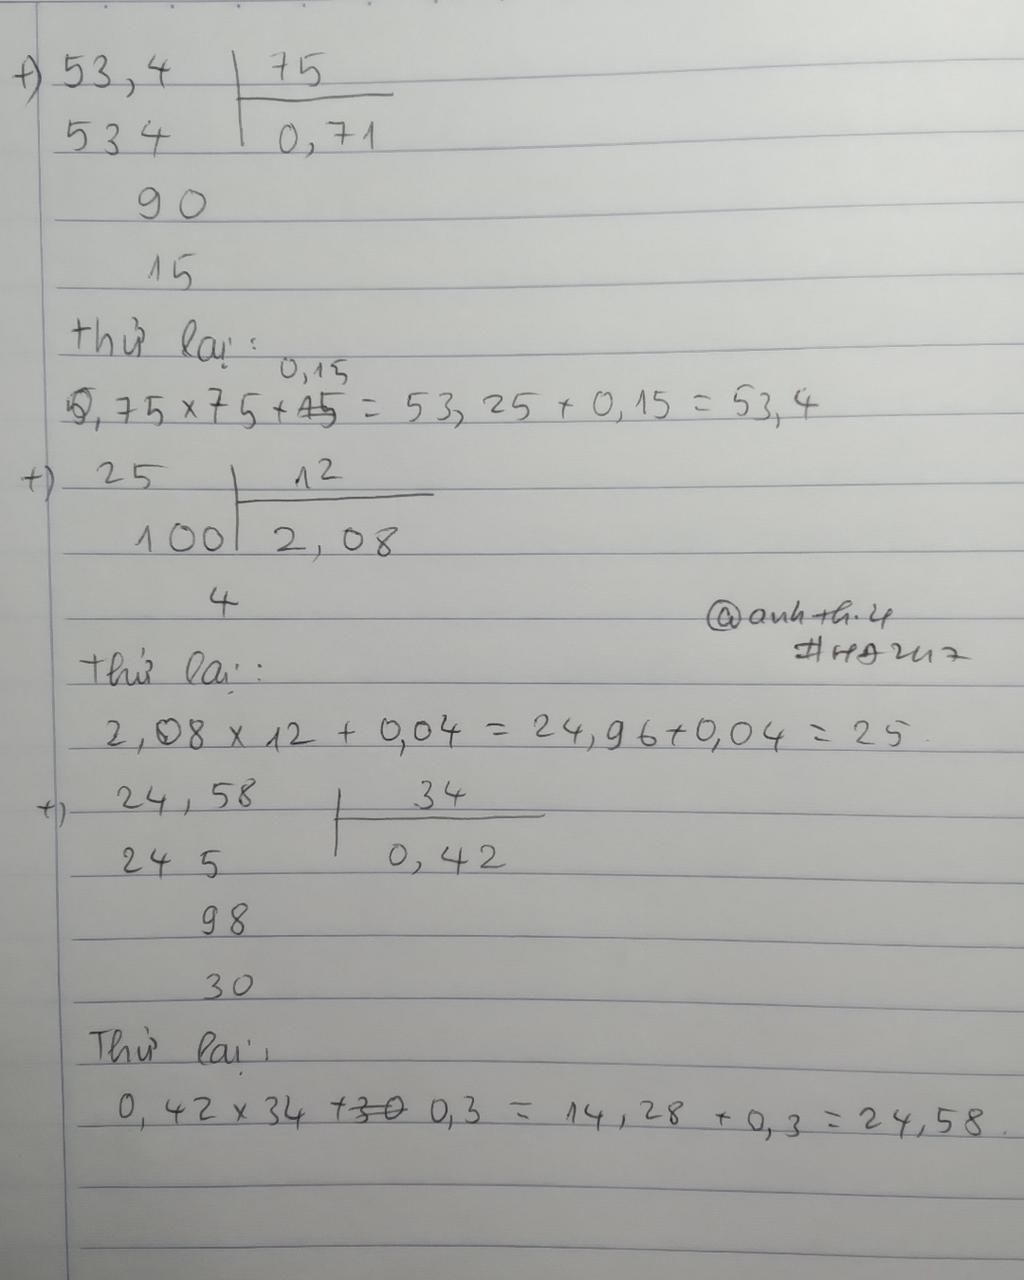 +) 53,4 | 75
534 | 0,71
90
15
thử lại:
0,15
0,75 x 75 + 15 = 53,25 + 0,15 = 53,4
+) 25 | 12
100 | 2,08
4
@anhth.4
thử lại:
2,08 x 12 + 0,04 = 24,96 + 0,04 = 25
+) 24,58 | 34
24 5 | 0,42
98
30
Thử lại:
0,42 x 34 + 30 0,3 = 14,28 + 0,3 = 24,58.